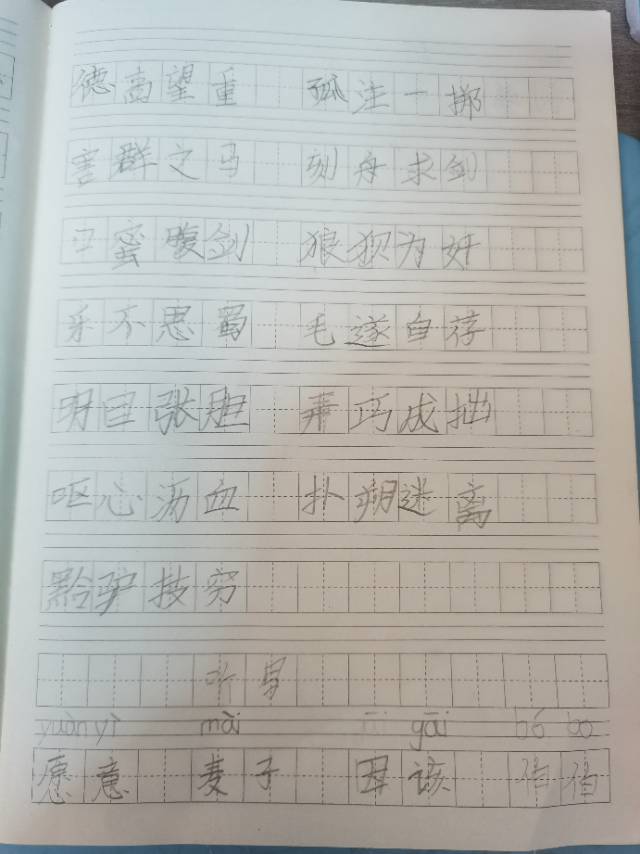 德高望重 孤注一掷
害群之马 刻舟求剑
口蜜腹剑 狼狈为奸
乐不思蜀 毛遂自荐
明目张胆 弄巧成拙
呕心沥血 扑朔迷离
黔驴技穷
听写
yuàn yì mài gāi bó bo
愿意 麦子 应该 伯伯